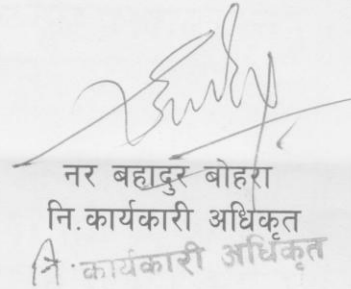 नर बहादुर बोहरा
नि.कार्यकारी अधिकृत
नि.कार्यकारी अधिकृत